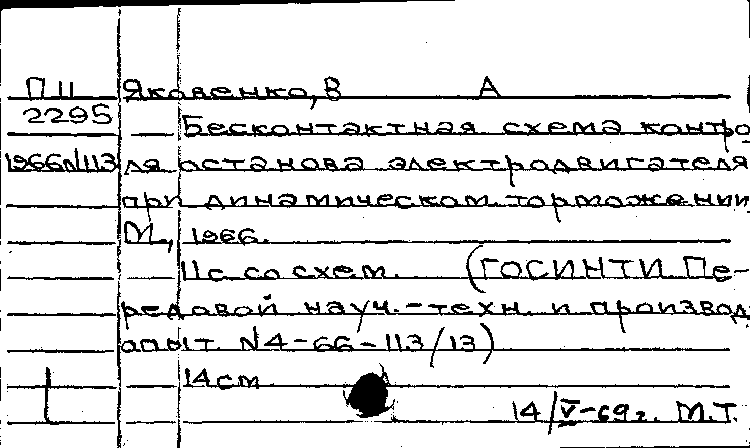 П 11 Яковенко, В А
2295 Бесконтактная схема контро
1966 N113 ля останова электродвигателя
при динамическом торможении
М., 1966.
11с со схем. (ГОСИНТИ Пе-
редовой науч.-техн. и производ
опыт. N4-66-113/13)
14см
14/V-69г. М.Т.